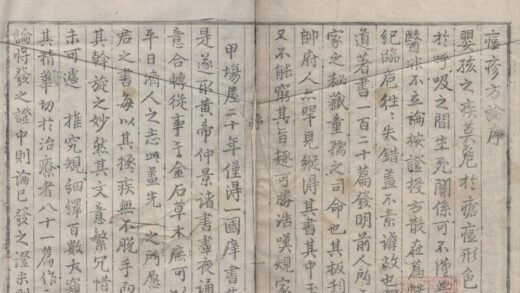 痘疹方論序
嬰孩之疾莫危於瘡痘形色
於呼吸之間生死關係可不謹
醫 不立論按證授方散在篇
紀臨危往〻失錯蓋不素講故也
道著書一百二十篇發明前人所
家之秘藏童孺之司命也其板刊
帥府人亦罕見縱得其書其中
又不能窮其旨趣可勝浩嘆規家
序
甲場屋二十年僅得一國庠書
是遂取黃帝仲景諸書晝夜誦
意合轉從事于金石草木庶可
平日濟人之志此蓋先 之所愿
君之書每以其拯疾無不脫手而
其斡旋之妙然其文意繁冗惜
未可遽 推究規細繹百數大窺
其精華切於治療者八十一篇作
論將發之證中則論已發之證末則